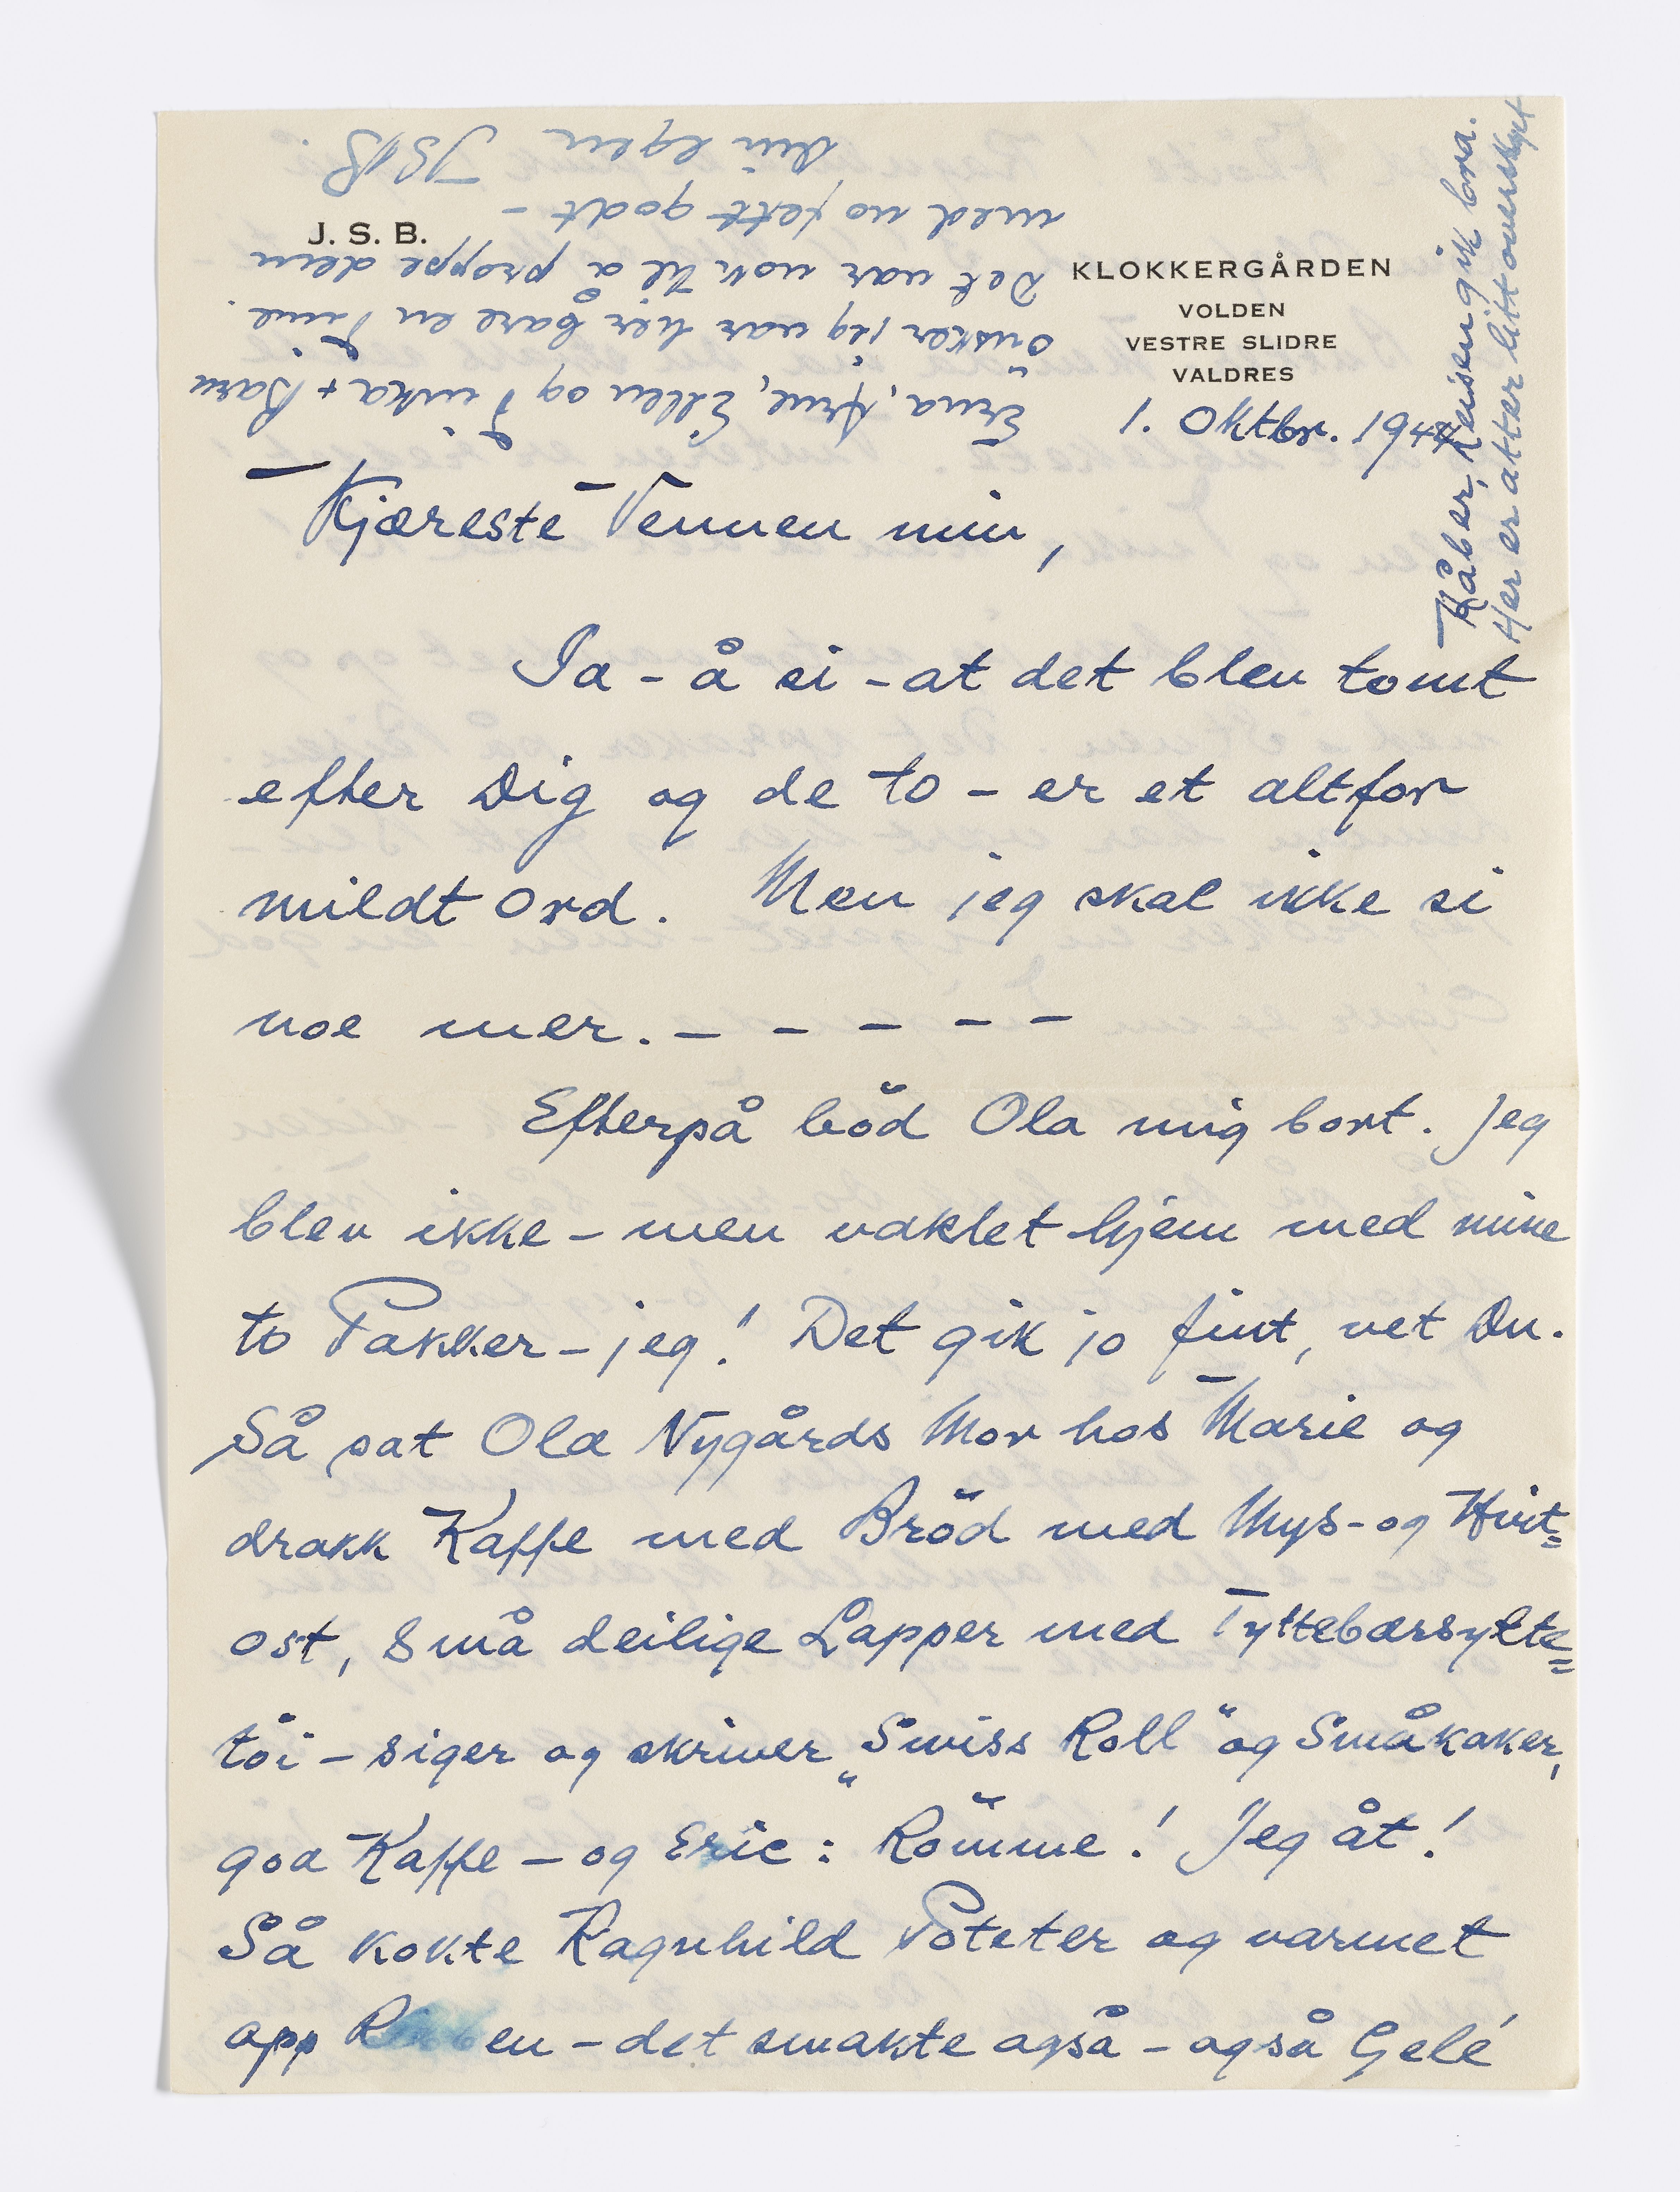 J. S. B.
KLOKKERGÅRDEN
VOLDEN
VESTRE SLIDRE
VALDRES
1. Oktbr. 1944
Kjæreste Vennen min,
Ja - å si - at det blev tomt
efter Dig og de to - er et altfor
mildt Ord. Men jeg skal ikke si
noe mer. - - - - -
Efterpå bød Ola mig bort. Jeg
blev ikke - men vaklet hjem med mine
to Pakker - jeg! Det gik jo fint, vet Du.
Så sat Ola Nygårds Mor hos Marie og
drakk Kaffe med Brød med Mys- og Hvit=
ost, små deilige Lapper med Tyttebærsylte=
tøi - siger og skriver „Swiss Roll" og Småkaker,
goa Kaffe - og Eric: Rømme! Jeg åt!
Så kokte Ragnhild Poteter og varmet
opp R en - det smakte også - også Gelé
Håber, Reisen gik bra.
Her er atter litt overskyet
Erna, Arne, Ellen og Tinka + Barn
ønsker jeg var her bare en Time.
Det var nok til å proppe dem
med no fett godt -
Din egen JSB.